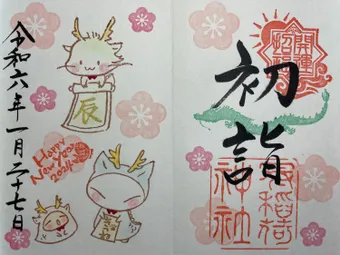 初詣
開運
招福
稲荷
神社
令和六年一月二十七日
辰
Happy
New year
2024